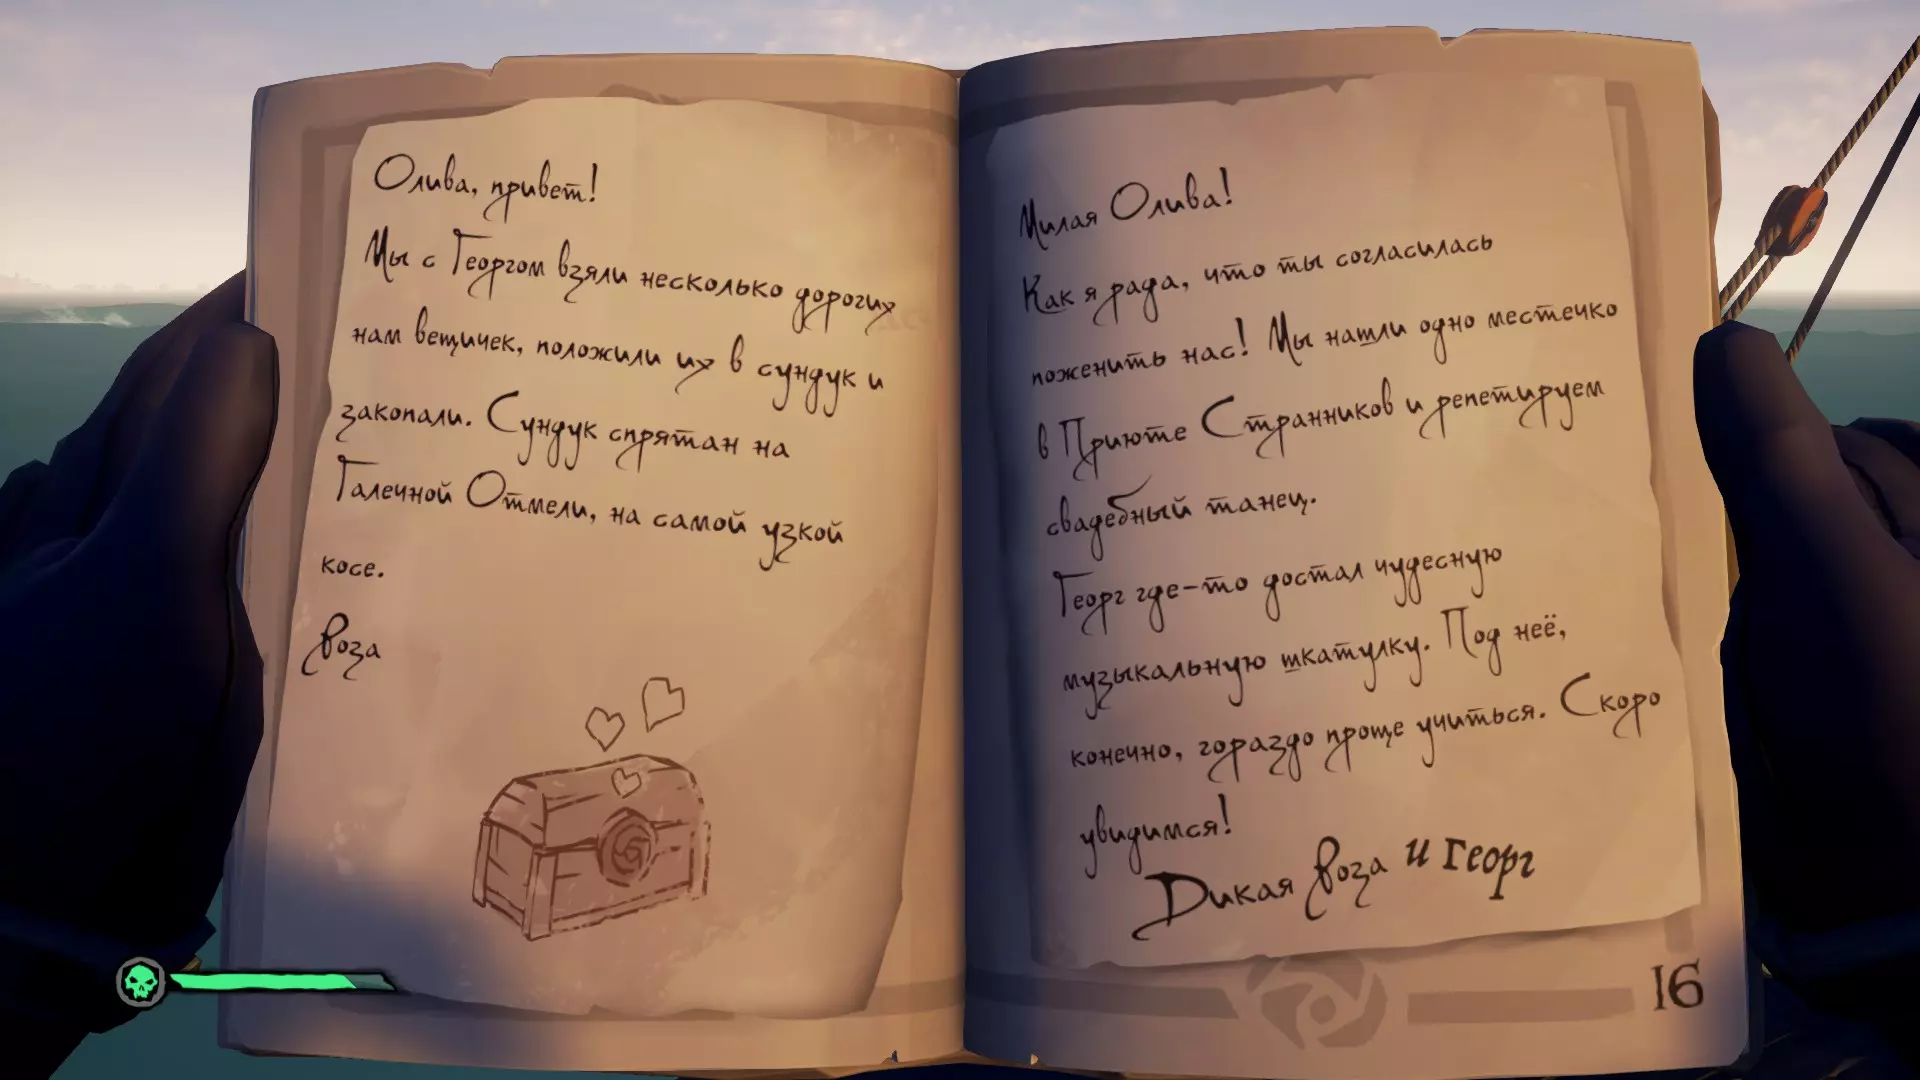 Олива, привет!
Мы с Георгом взяли несколько дорогих
нам вещичек, положили их в сундук и
закопали. Сундук спрятан на
Галечной Отмели, на самой узкой
косе.
Роза
Милая Олива!
Как я рада, что ты согласилась
поженить нас! Мы нашли одно местечко
в Приюте Странников и репетируем
свадебный танец.
Георг где-то достал чудесную
музыкальную шкатулку. Под неё,
конечно, гораздо проще учиться. Скоро
увидимся!
Дикая Роза и Георг
16